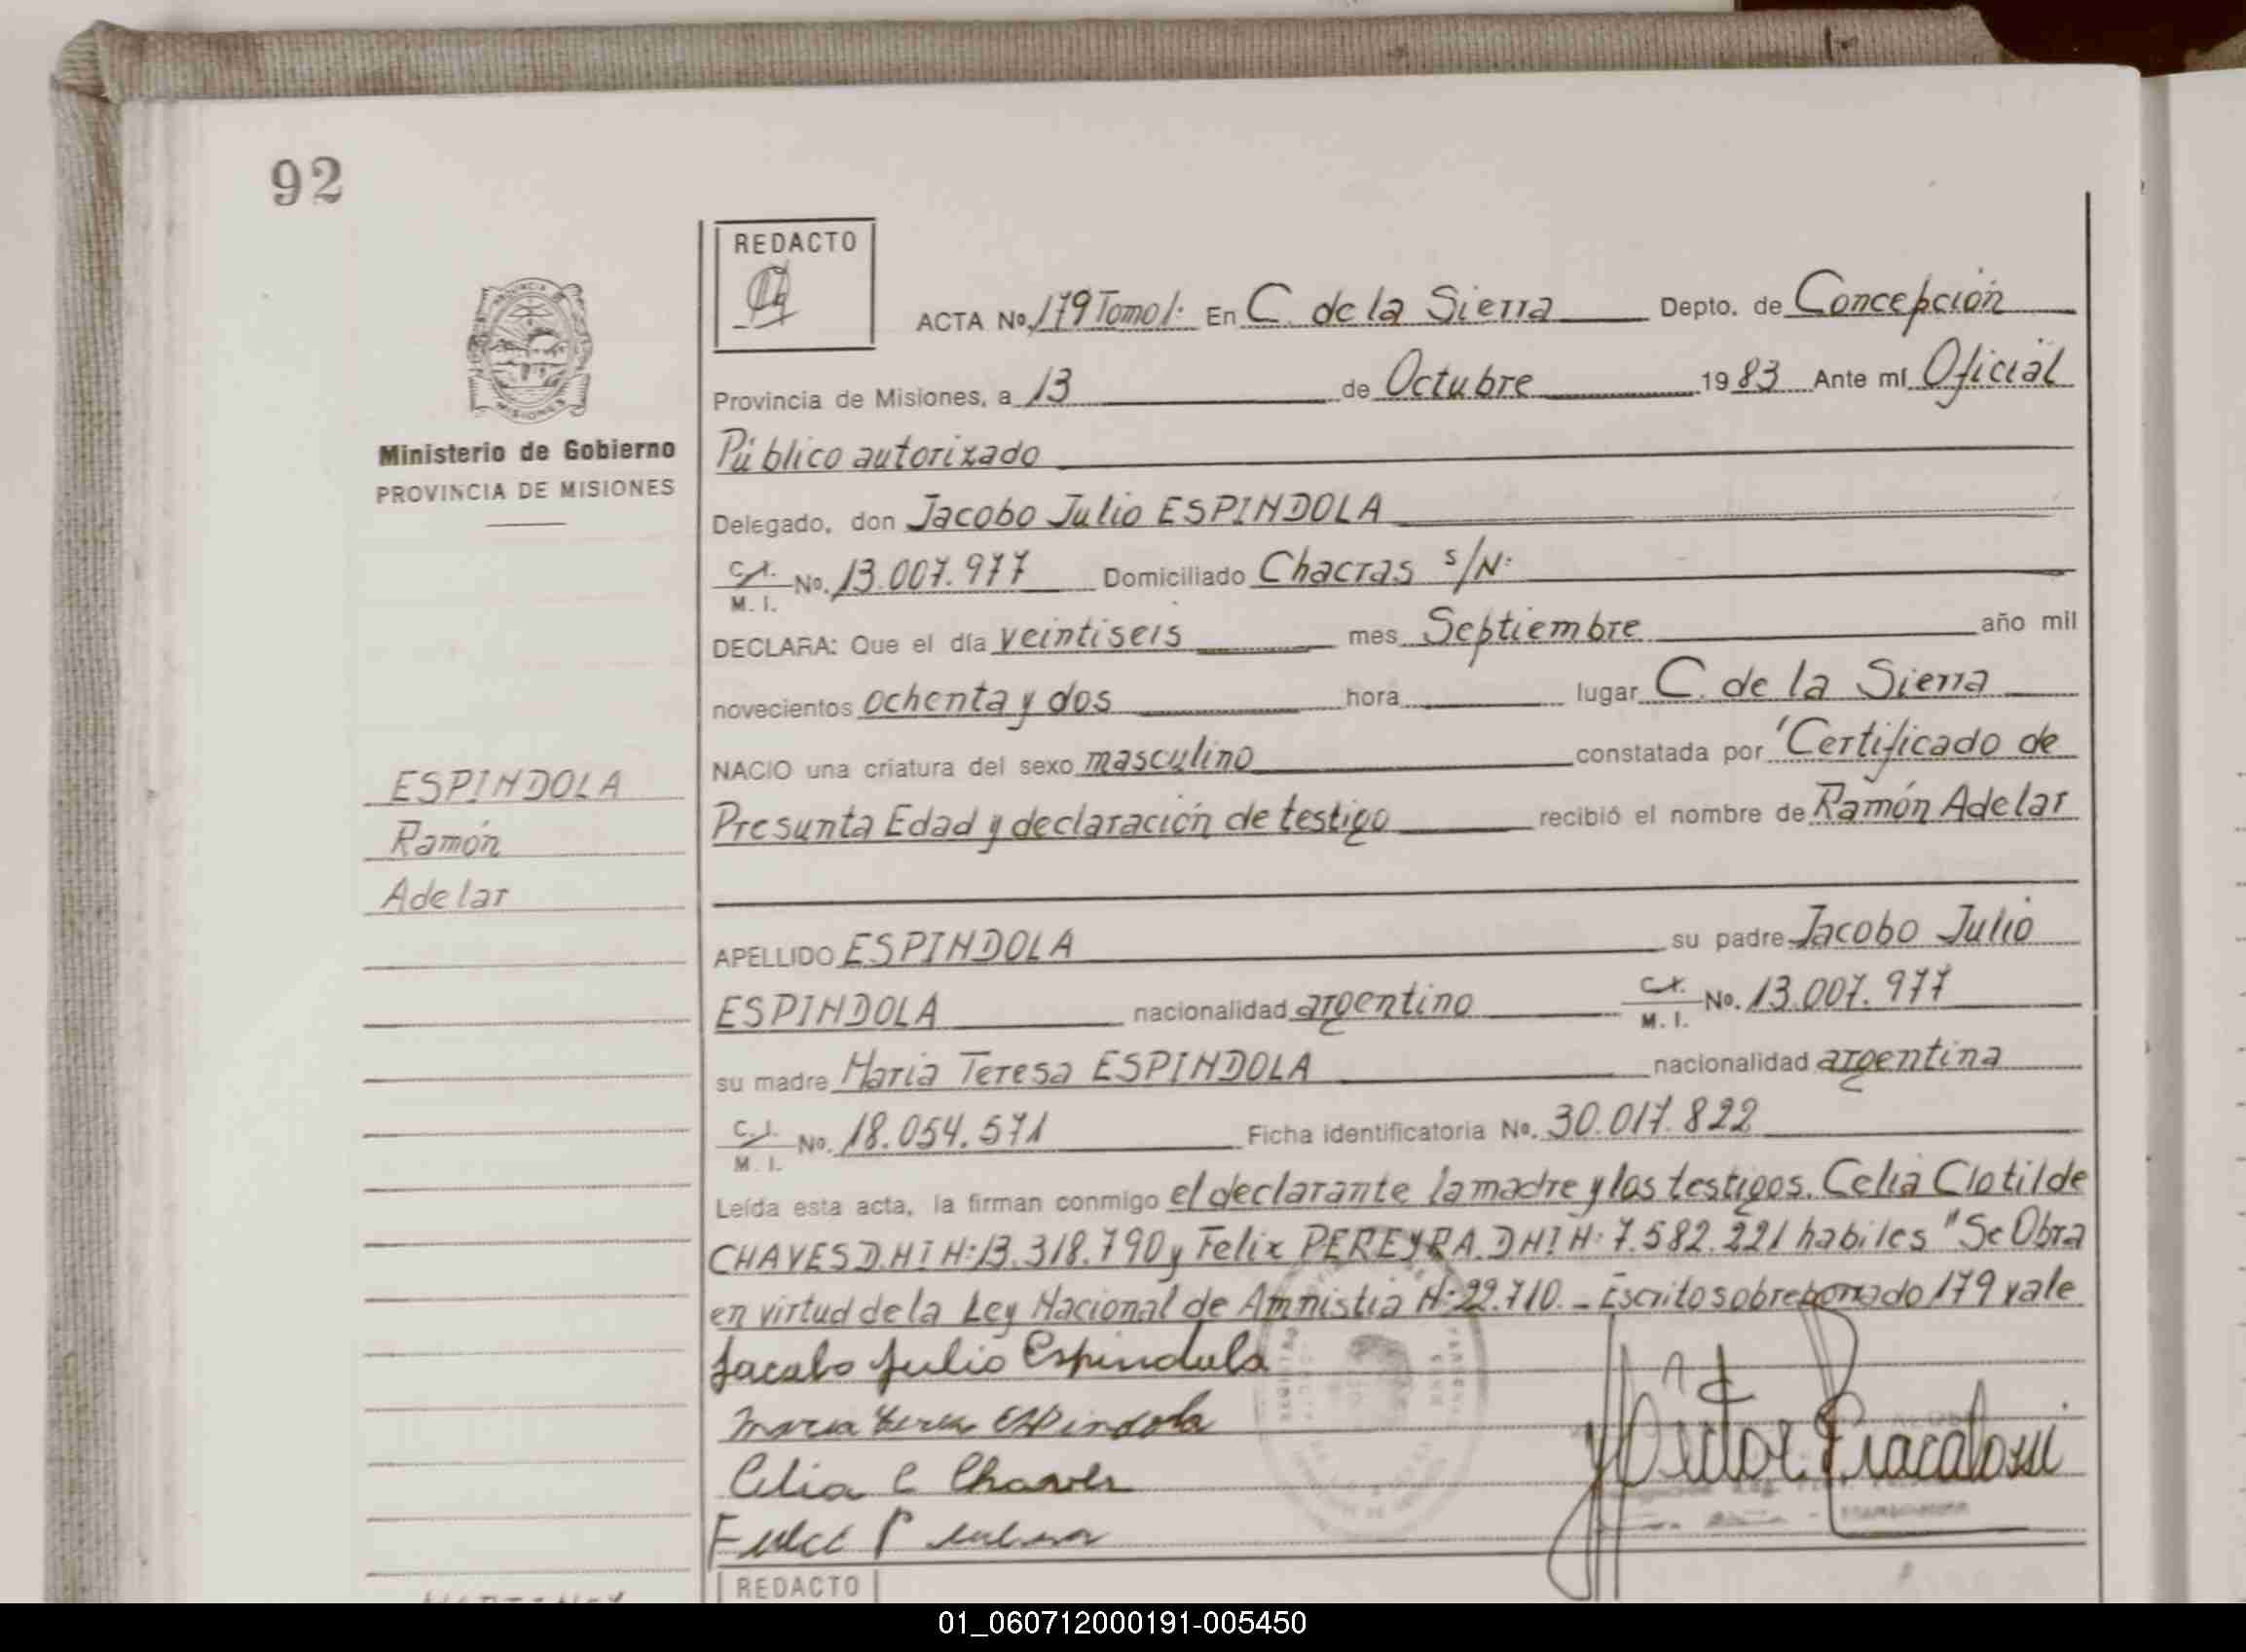 92
REDACTO
ACTA No. 179 Tomo 1: En C. de la Sierra Depto. de Concepción
Provincia de Misiones, a 13 de Octubre 1983 Ante mí Oficial
Ministerio de Gobierno
Público autorizado
PROVINCIA DE MISIONES
Delegado, don Jacobo Julio ESPINDOLA
C.I. No. 13.007.977 Domiciliado Chacras s/N:
M. I.
DECLARA: Que el día veintiseis mes Septiembre año mil
novecientos ochenta y dos hora lugar C. de la Sierra
NACIO una criatura del sexo masculino constatada por "Certificado de
ESPINDOLA
Presunta Edad y declaración de testigo recibió el nombre de Ramón Adelar
Ramón
Adelar
APELLIDO ESPINDOLA su padre Jacobo Julio
ESPINDOLA nacionalidad argentino C.I. No. 13.007.977
M. I.
su madre Maria Teresa ESPINDOLA nacionalidad argentina
C. I. No. 18.054.571 Ficha identificatoria No. 30.017.822
M. I.
Leída esta acta, la firman conmigo el declarante la madre y los testigos. Celia Clotilde
CHAVES D.N.I N: 13.318.790 y Felix PEREYRA. D N I N: 7.582.221 habiles "Se Obra
en virtud de la Ley Nacional de Amnistia N: 22.710. - Escrito sobreborrado 179 vale
Jacobo Julio Espindola
Maria Teresa Espindola
Celia C Chaves
REDACTO
01_060712000191-005450